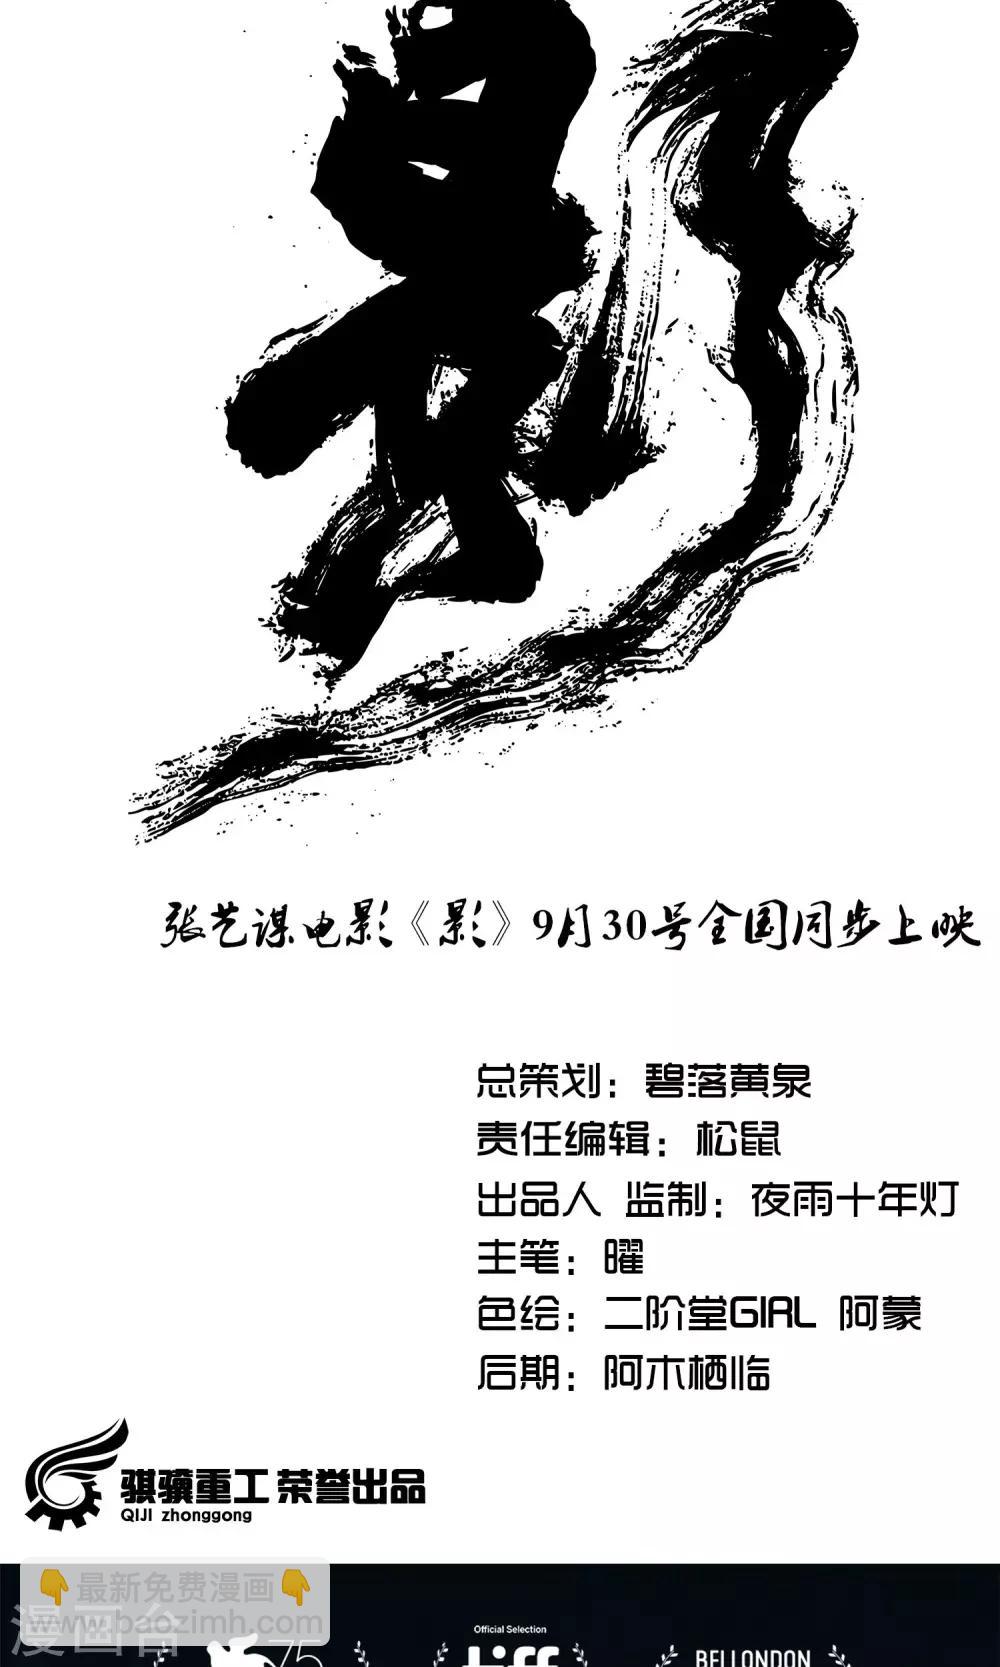 影
张艺谋电影《影》9月30号全国同步上映
总策划：碧落黄泉
责任编辑：松鼠
出品人 监制：夜雨十年灯
主笔：曜
色绘：二阶堂GIRL 阿蒙
后期：阿木栖临
骐骥重工 荣誉出品
QIJI zhonggong
👇最新免费漫画👇
www.baozimh.com
漫画台
Official Selection
75
tiff
BFI LONDON